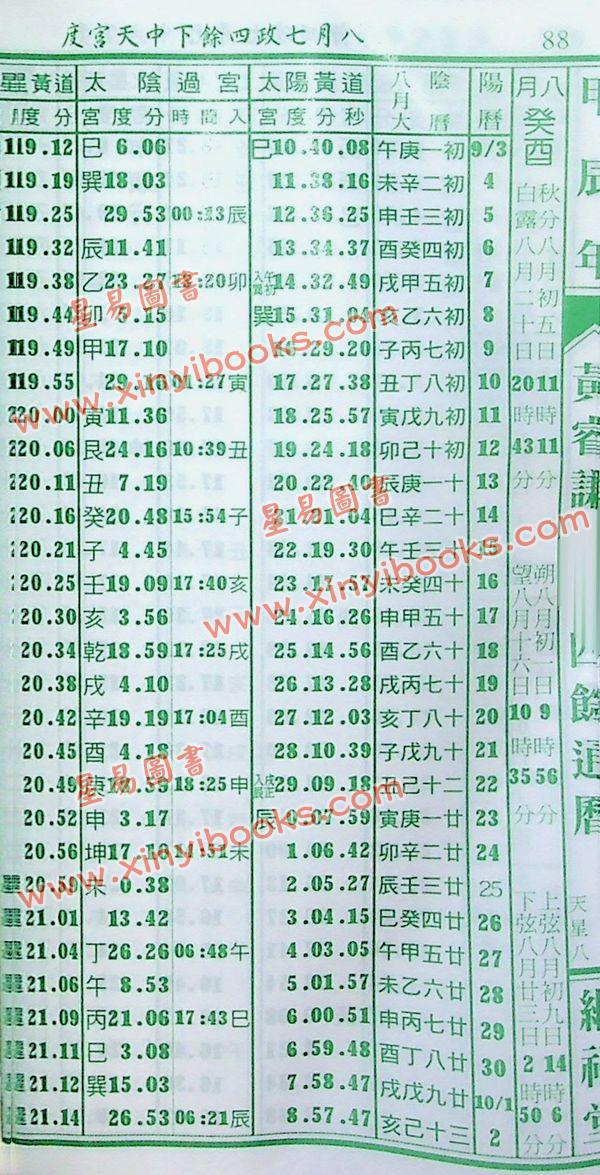 88
八月七政四餘下中天宮度
甲辰年
餘通曆
天星八
八月癸酉
秋分八月初五日11時11分
白露八月二十日20時43分
朔八月初一日9時56分
望八月十六日10時35分
上弦八月初九日14時6分
下弦八月廿三日2時50分
黃道 太陰過宮 太陽黃道 陰曆八月大 陽曆
度分 宮度分 時間入 宮度分秒
119.12 巳 6.06 巳 10.40.08 初一庚午 9/3
119.19 巽 18.03 11.38.16 初二辛未 4
119.25 29.53 00:13 辰 12.36.25 初三壬申 5
119.32 辰 11.41 13.34.37 初四癸酉 6
119.38 乙 23.27 12:20 卯 午初入巽 14.32.49 初五甲戌 7
119.44 卯 5.15 巽 15.31.04 初六乙亥 8
119.49 甲 17.10 16.29.20 初七丙子 9
119.55 29.16 01:27 寅 17.27.38 初八丁丑 10
220.00 寅 11.36 18.25.57 初九戊寅 11
220.06 艮 24.16 10:39 丑 19.24.18 初十己卯 12
220.11 丑 7.19 20.22.40 十一庚辰 13
220.16 癸 20.48 15:54 子 21.21.04 十二辛巳 14
220.21 子 4.45 22.19.30 十三壬午 15
220.25 壬 19.09 17:40 亥 23.17.57 十四癸未 16
220.30 亥 3.56 24.16.26 十五甲申 17
20.34 乾 18.59 17:25 戌 25.14.56 十六乙酉 18
20.38 戌 4.10 26.13.28 十七丙戌 19
20.42 辛 19.19 17:04 酉 27.12.03 十八丁亥 20
20.45 酉 4.18 28.10.39 十九戊子 21
20.49 庚 18:25 申 戌正入辰 29.09.18 二十己丑 22
20.52 申 3.17 辰 0.07.59 廿一庚寅 23
20.56 坤 17.16 14:51 未 1.06.42 廿二辛卯 24
20.59 未 0.38 2.05.27 廿三壬辰 25
21.01 13.42 3.04.15 廿四癸巳 26
21.04 丁 26.26 06:48 午 4.03.05 廿五甲午 27
21.06 午 8.53 5.01.57 廿六乙未 28
21.09 丙 21.06 17:43 巳 6.00.51 廿七丙申 29
21.11 巳 3.08 6.59.48 廿八丁酉 30
21.12 巽 15.03 7.58.47 廿九戊戌 10/1
21.14 26.53 06:21 辰 8.57.47 三十己亥 2
星易圖書
www.xinyibooks.com
星易圖書
www.xinyibooks.com
星易圖書
www.xinyibooks.com